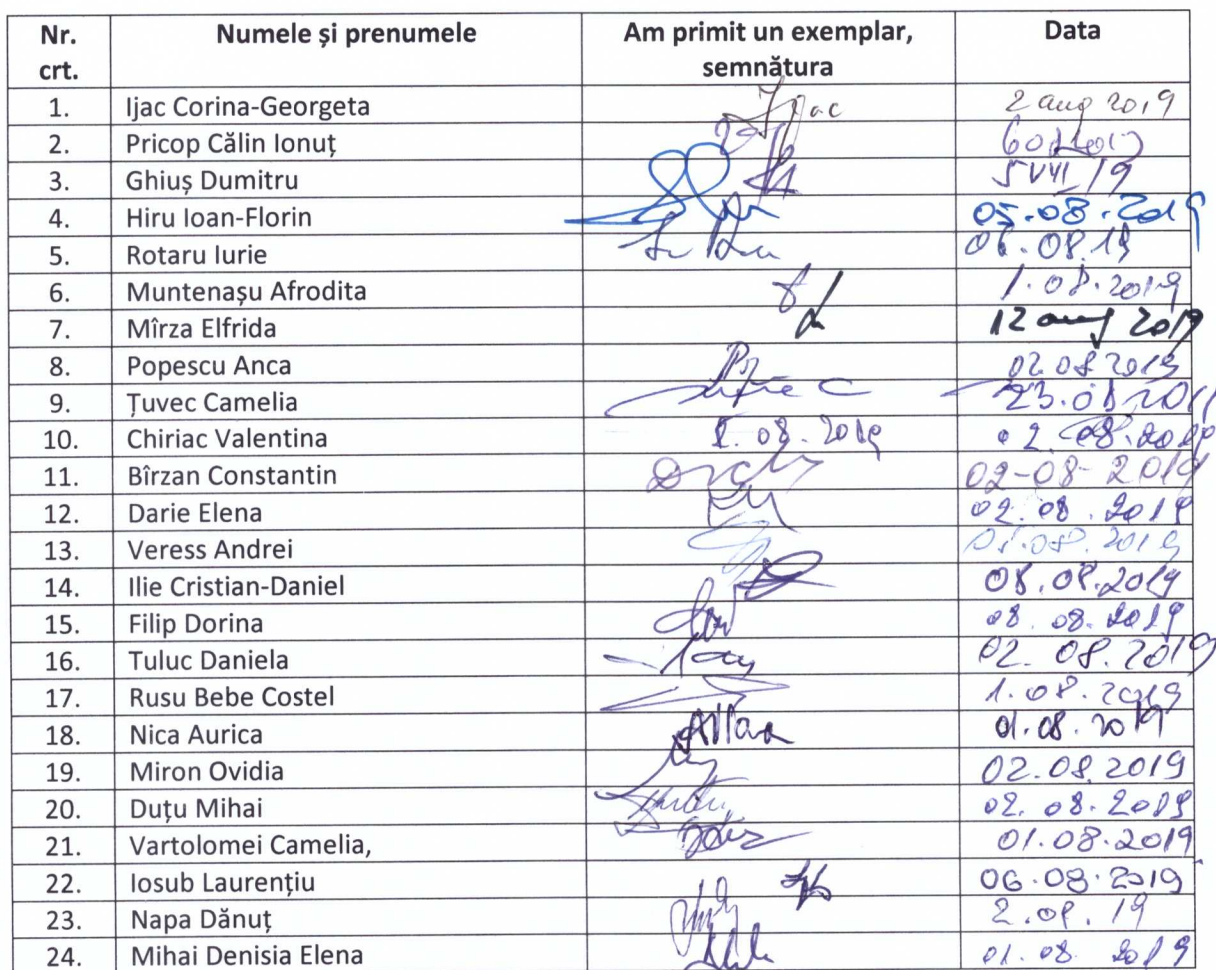 Nr. crt. Numele și prenumele Am primit un exemplar, semnătura Data
1. Ijac Corina-Georgeta Ijac 2 aug 2019
2. Pricop Călin Ionuț
3. Ghiuș Dumitru 5 VIII 19
4. Hiru Ioan-Florin 05.08.2019
5. Rotaru Iurie 06.08.19
6. Muntenașu Afrodita 1.08.2019
7. Mîrza Elfrida 12 aug 2019
8. Popescu Anca 02.08.2019
9. Țuvec Camelia
10. Chiriac Valentina 2.08.2019 02.08.2019
11. Bîrzan Constantin 02-08-2019
12. Darie Elena 02.08.2019
13. Veress Andrei 01.08.2019
14. Ilie Cristian-Daniel 08.08.2019
15. Filip Dorina 08.08.2019
16. Tuluc Daniela 02.08.2019
17. Rusu Bebe Costel 1.08.2019
18. Nica Aurica 01.08.2019
19. Miron Ovidia 02.08.2019
20. Duțu Mihai 02.08.2019
21. Vartolomei Camelia, 01.08.2019
22. Iosub Laurențiu 06.08.2019
23. Napa Dănuț 2.08.19
24. Mihai Denisia Elena 01.08.2019